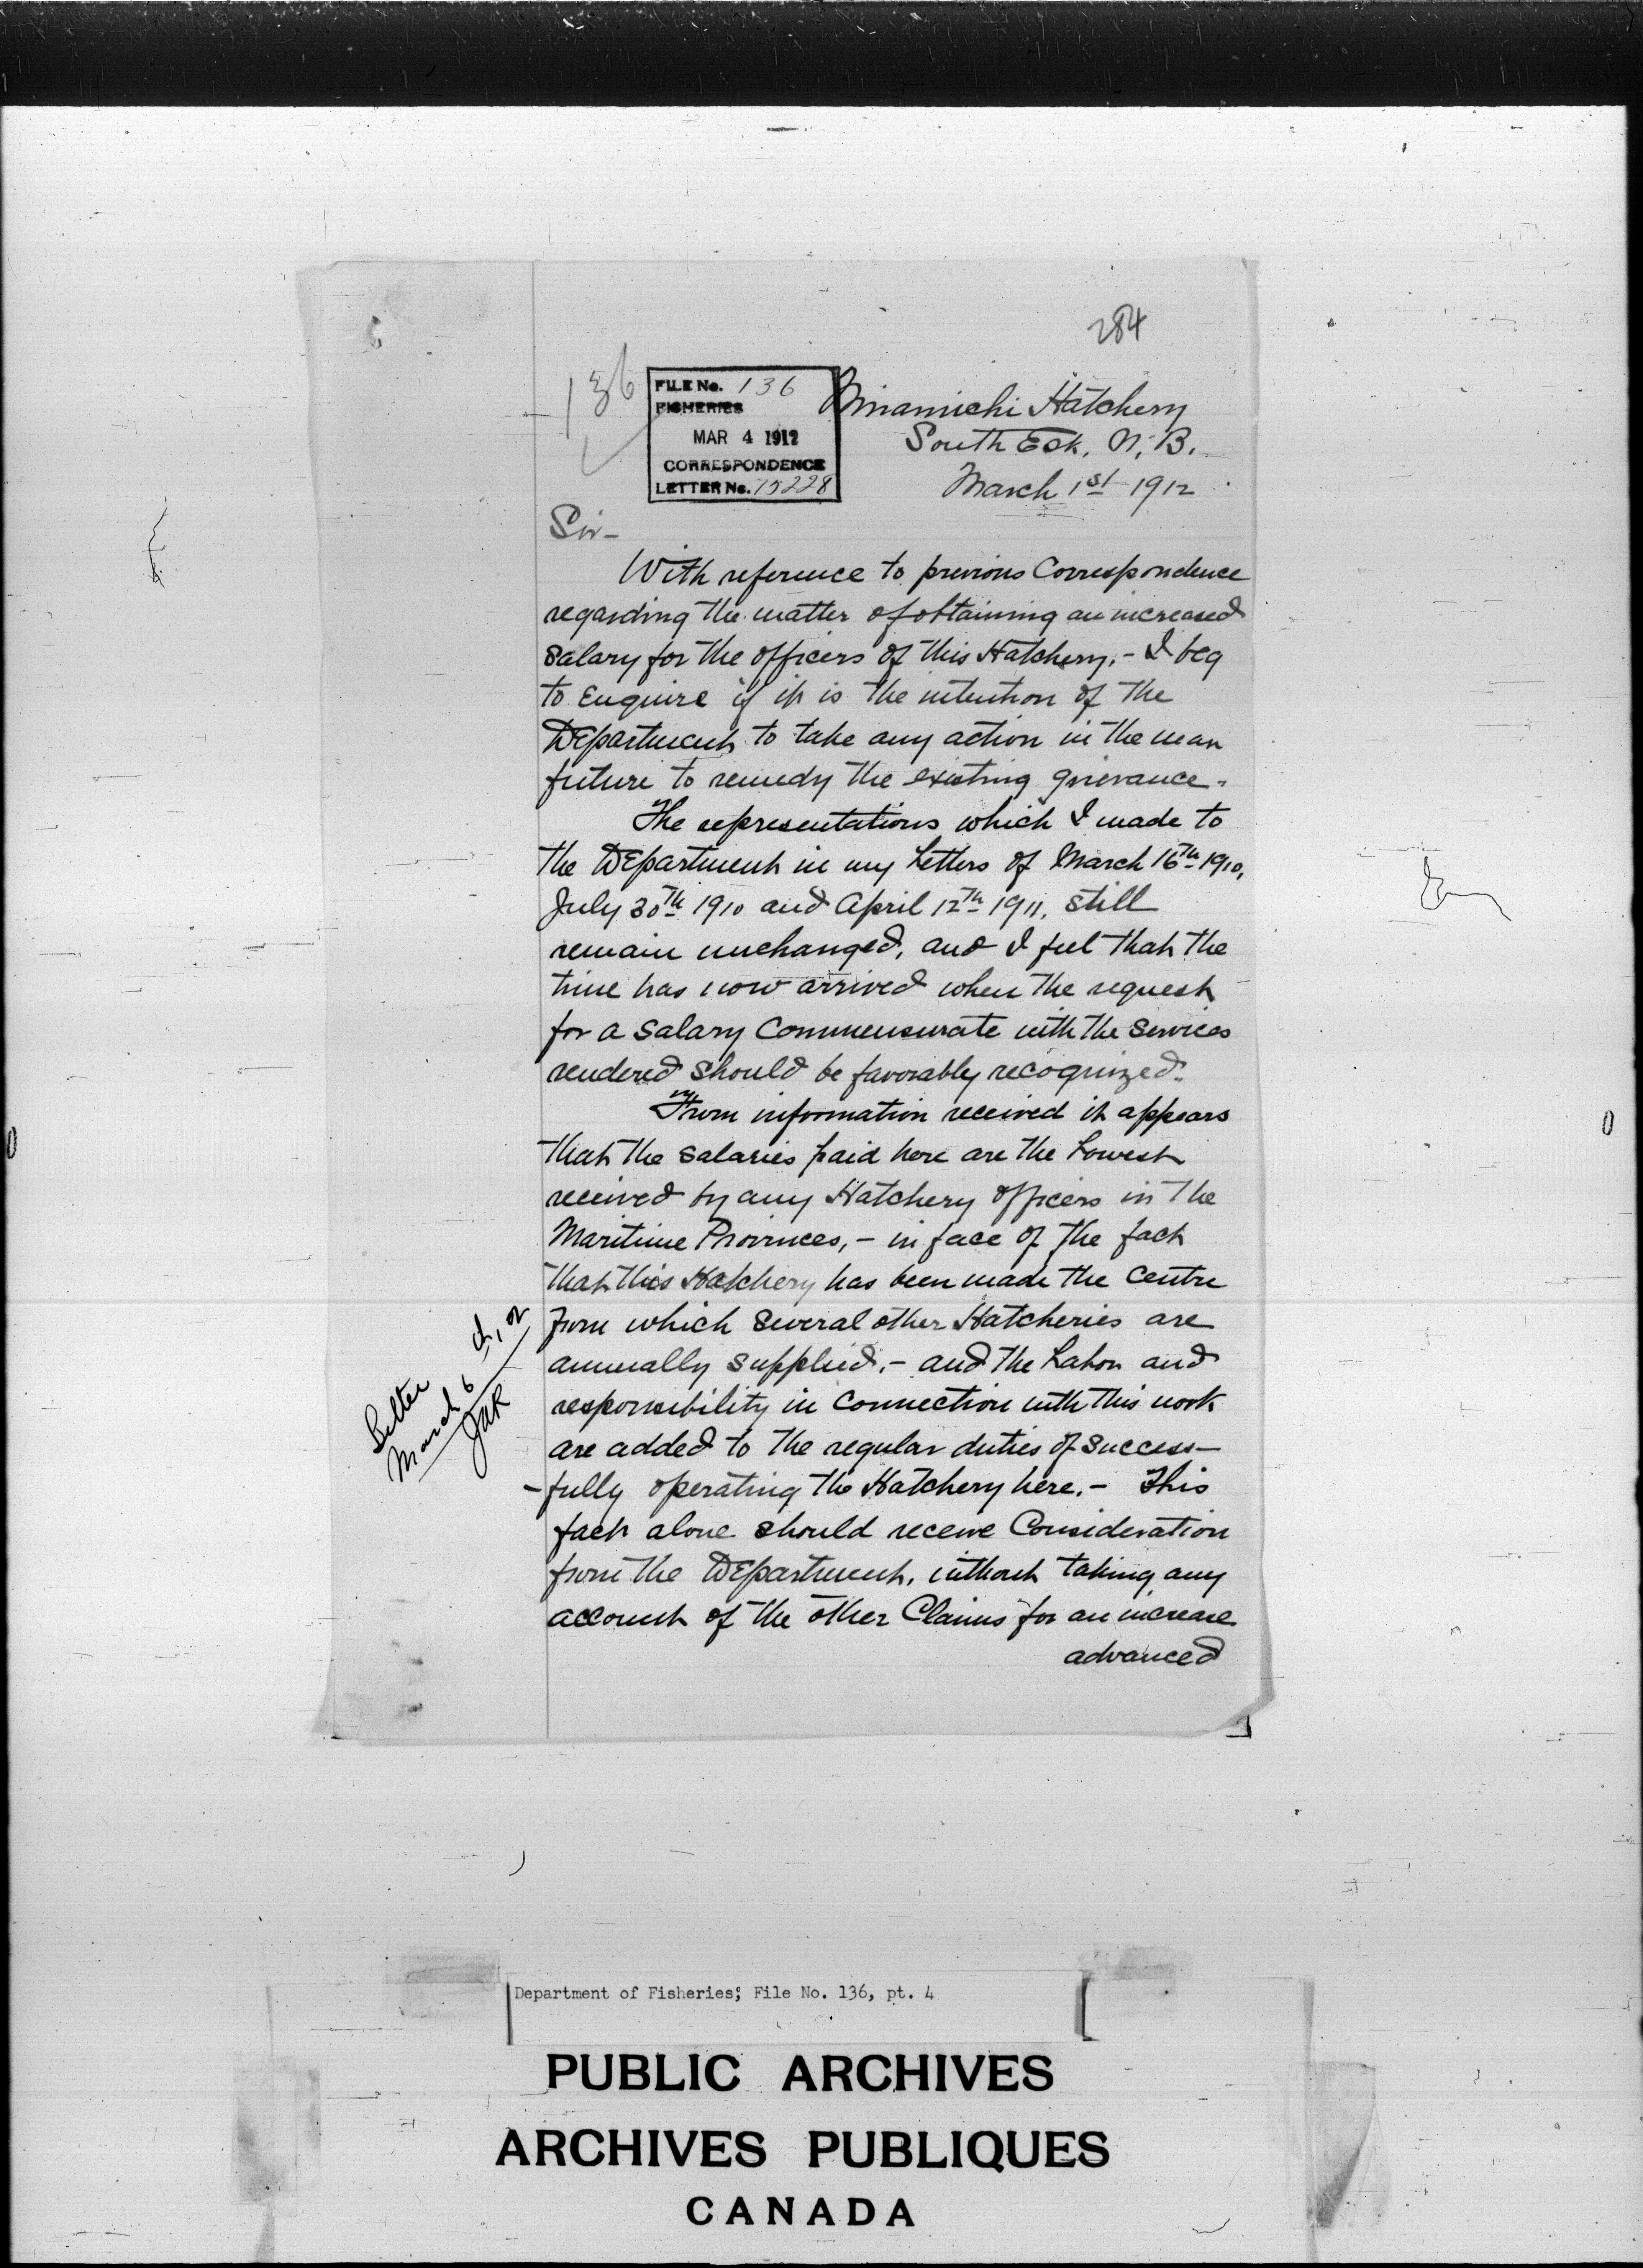 284
136
FILE No. 136
FISHERIES
MAR 4 1912
CORRESPONDENCE
LETTER No. 75228
Miramichi Hatchery
South Esk, N. B.
March 1st 1912
Sir -
With reference to previous Correspondence
regarding the matter of obtaining an increased
Salary for the officers of this Hatchery, - I beg
to Enquire if it is the intention of the
Department to take any action in the near
future to remedy the existing grievance -
The representations which I made to
the Department in my Letters of March 16th 1910,
July 30th 1910 and April 12th 1911, still
remain unchanged, and I feel that the
time has now arrived when the request
for a Salary Commensurate with the Services
rendered should be favorably recognized.
From information received it appears
that the Salaries paid here are the Lowest
received by any Hatchery officers in the
Maritime Provinces, - in face of the fact
that this Hatchery has been made the Centre
from which Several other Hatcheries are
annually supplied, - and the Labor and
responsibility in Connection with this work
are added to the regular duties of Success-
-fully operating the Hatchery here. - This
fact alone should receive Consideration
from the Department, without taking any
account of the other Claims for an increase
advanced
Letter
March 6
JAR
Department of Fisheries; File No. 136, pt. 4
PUBLIC ARCHIVES
ARCHIVES PUBLIQUES
CANADA